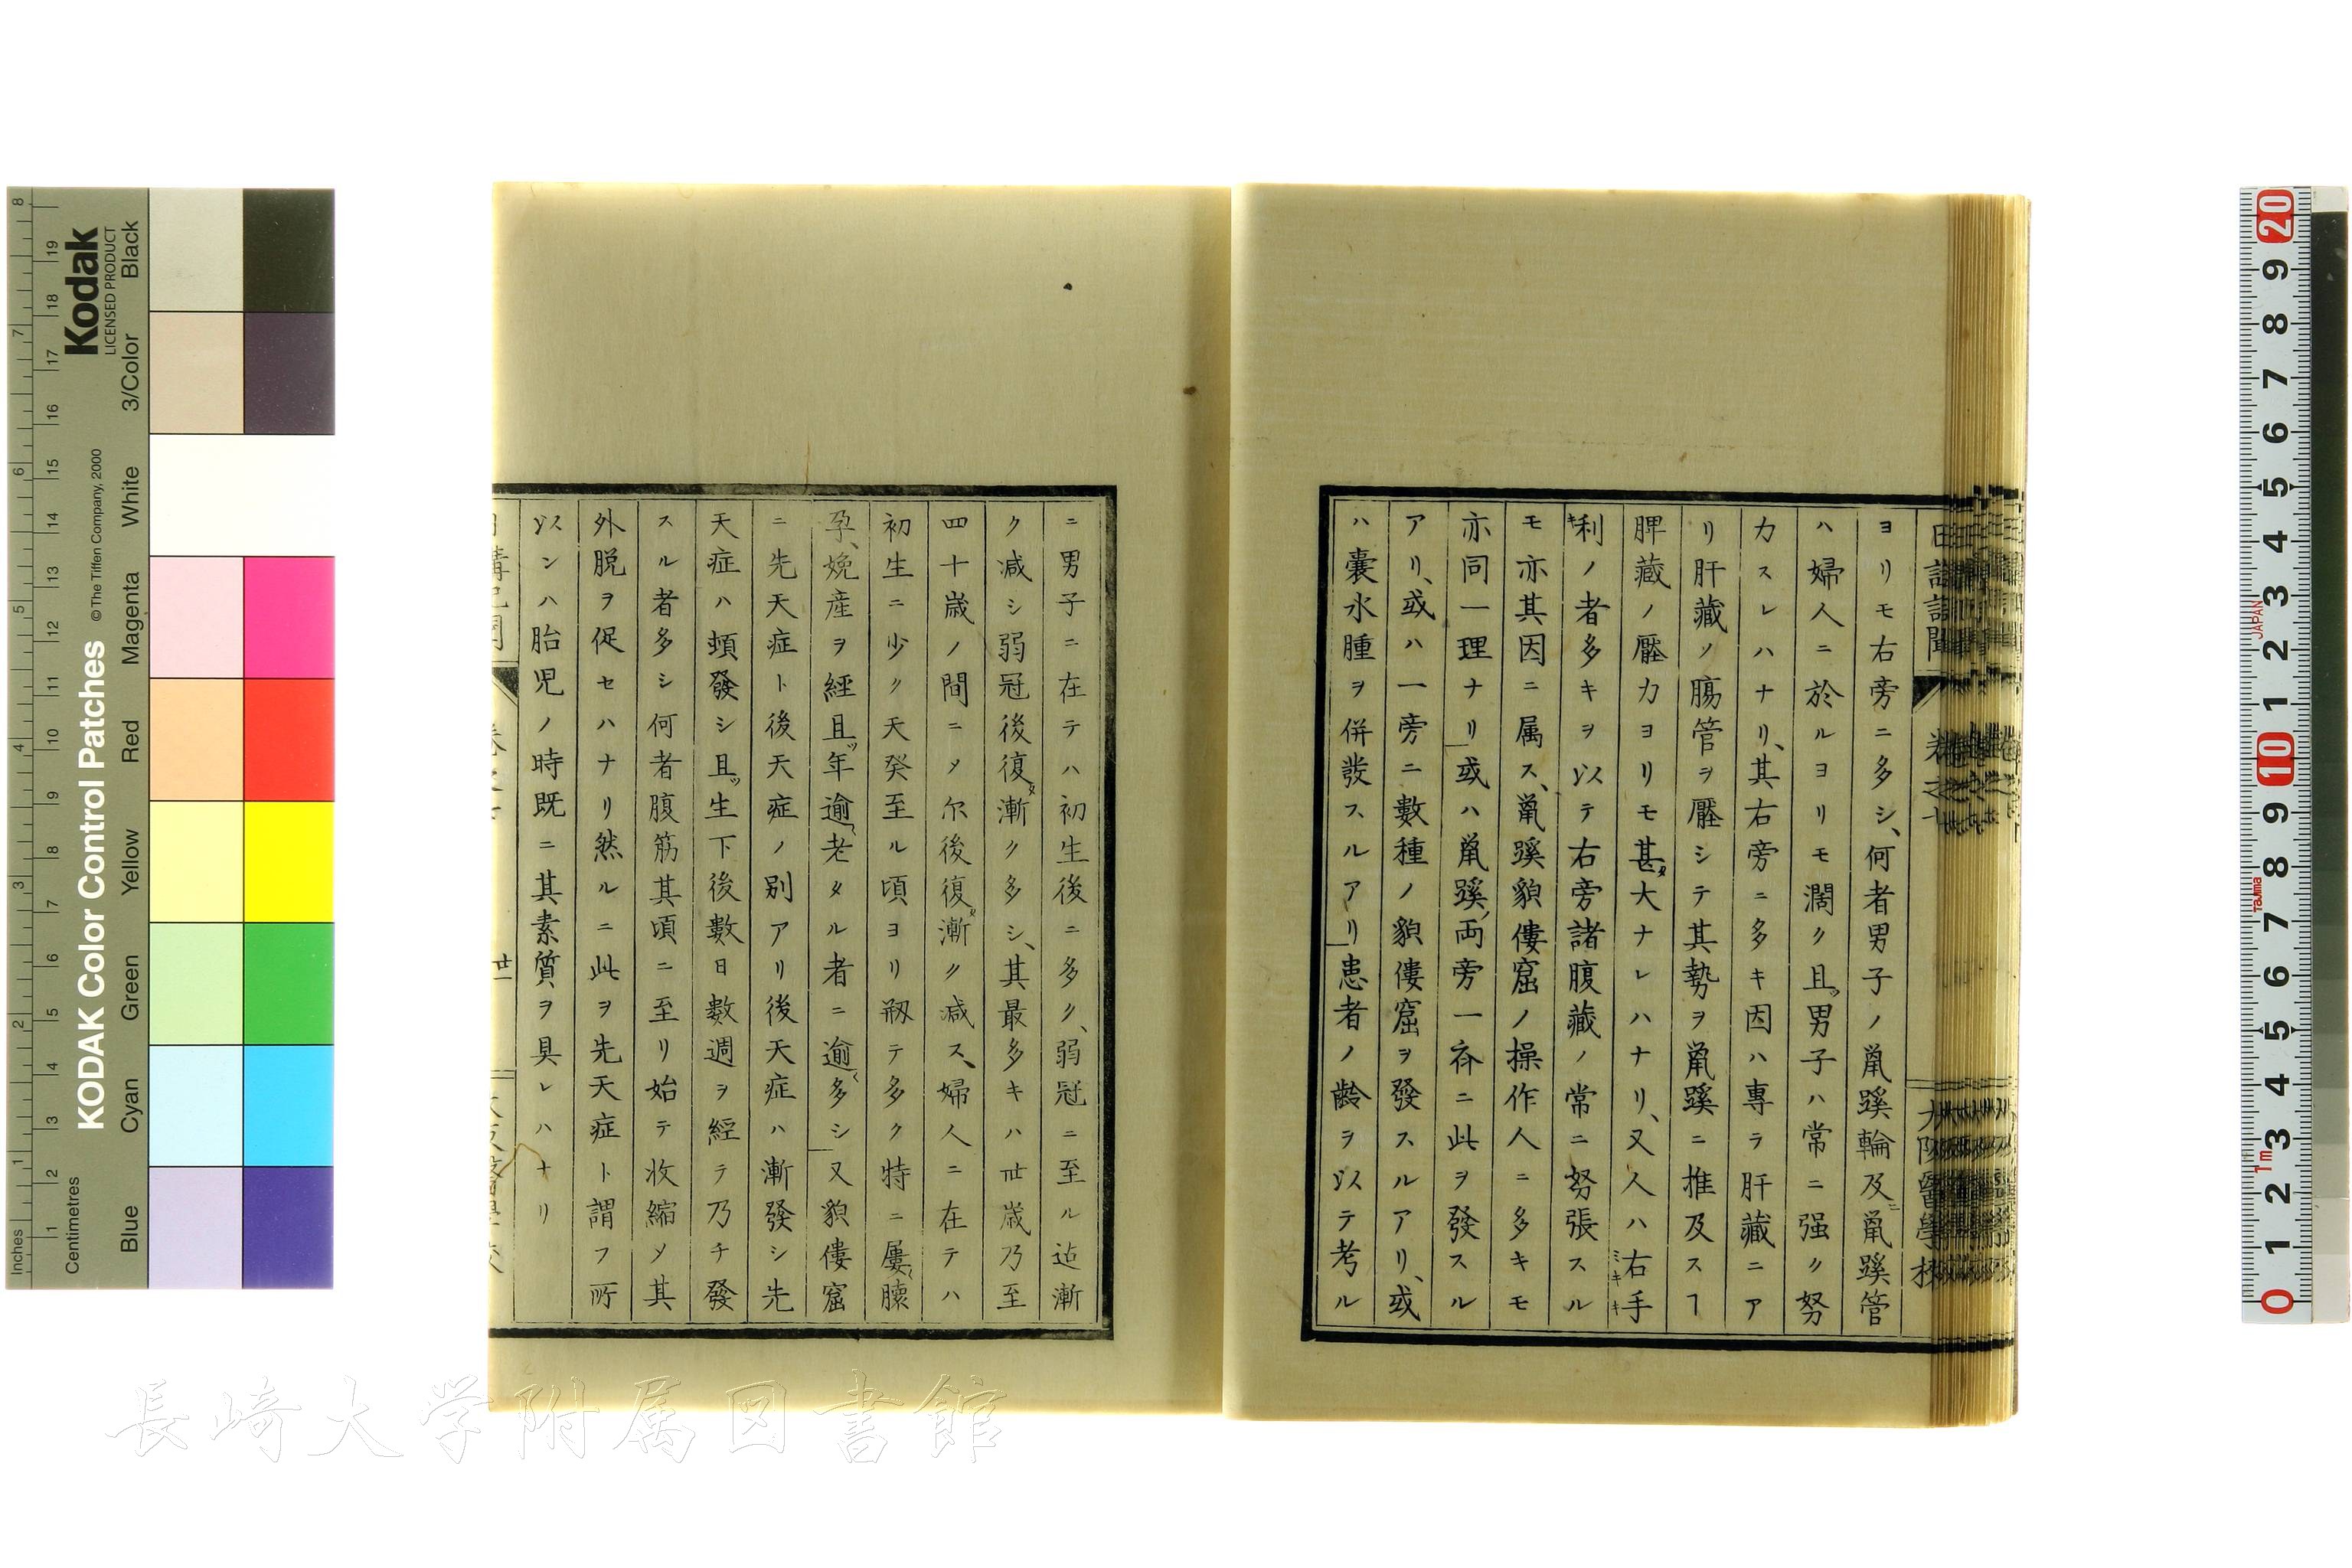 日講記聞 卷之七 大阪醫學校
ヨリモ右旁ニ多シ、何者男子ノ鼡蹊輪及鼡蹊管
ハ婦人ニ於ルヨリモ濶ク且ツ男子ハ常ニ强ク努
力スレハナリ、其右旁ニ多キ因ハ專ラ肝藏ニア
リ肝藏ノ膓管ヲ壓シテ其勢ヲ鼡蹊ニ推及スヿ
脾藏ノ壓力ヨリモ甚タ大ナレハナリ、又人ハ右手
利ノ者多キヲ以テ右旁諸腹藏ノ常ニ努張スル
モ亦其因ニ属ス、鼡蹊貌僂窟ノ操作人ニ多キモ
亦同一理ナリ或ハ鼡蹊ノ両旁一斉ニ此ヲ發スル
アリ、或ハ一旁ニ數種ノ貌僂窟ヲ發スルアリ、或
ハ囊水腫ヲ併發スルアリ患者ノ齢ヲ以テ考ル
ニ男子ニ在テハ初生後ニ多ク、弱冠ニ至ル迠漸
ク减シ弱冠後復タ漸ク多シ、其最多キハ卅歳乃至
四十歳ノ間ニ〆尓後復タ漸ク减ス、婦人ニ在テハ
初生ニ少ク天癸至ル頃ヨリ剏テ多ク特ニ屢〻懷
孕、娩産ヲ經且ツ年逾〻老タル者ニ逾〻多シ又貌僂窟
ニ先天症ト後天症ノ別アリ後天症ハ漸發シ先
天症ハ頓發シ且ツ生下後數日數週ヲ經テ乃チ發
スル者多シ何者腹筋其頃ニ至リ始テ收縮〆其
外脱ヲ促セハナリ然ルニ此ヲ先天症ト謂フ所
以ンハ胎児ノ時既ニ其素質ヲ具レハナリ
日講記聞 卷之七 廿一
KODAK Color Control Patches
© The Tiffen Company, 2000
Kodak
LICENSED PRODUCT
Inches
Centimetres
Blue Cyan Green Yellow Red Magenta White 3/Color Black
JAPAN
Tajima
1m
長崎大学附属図書館